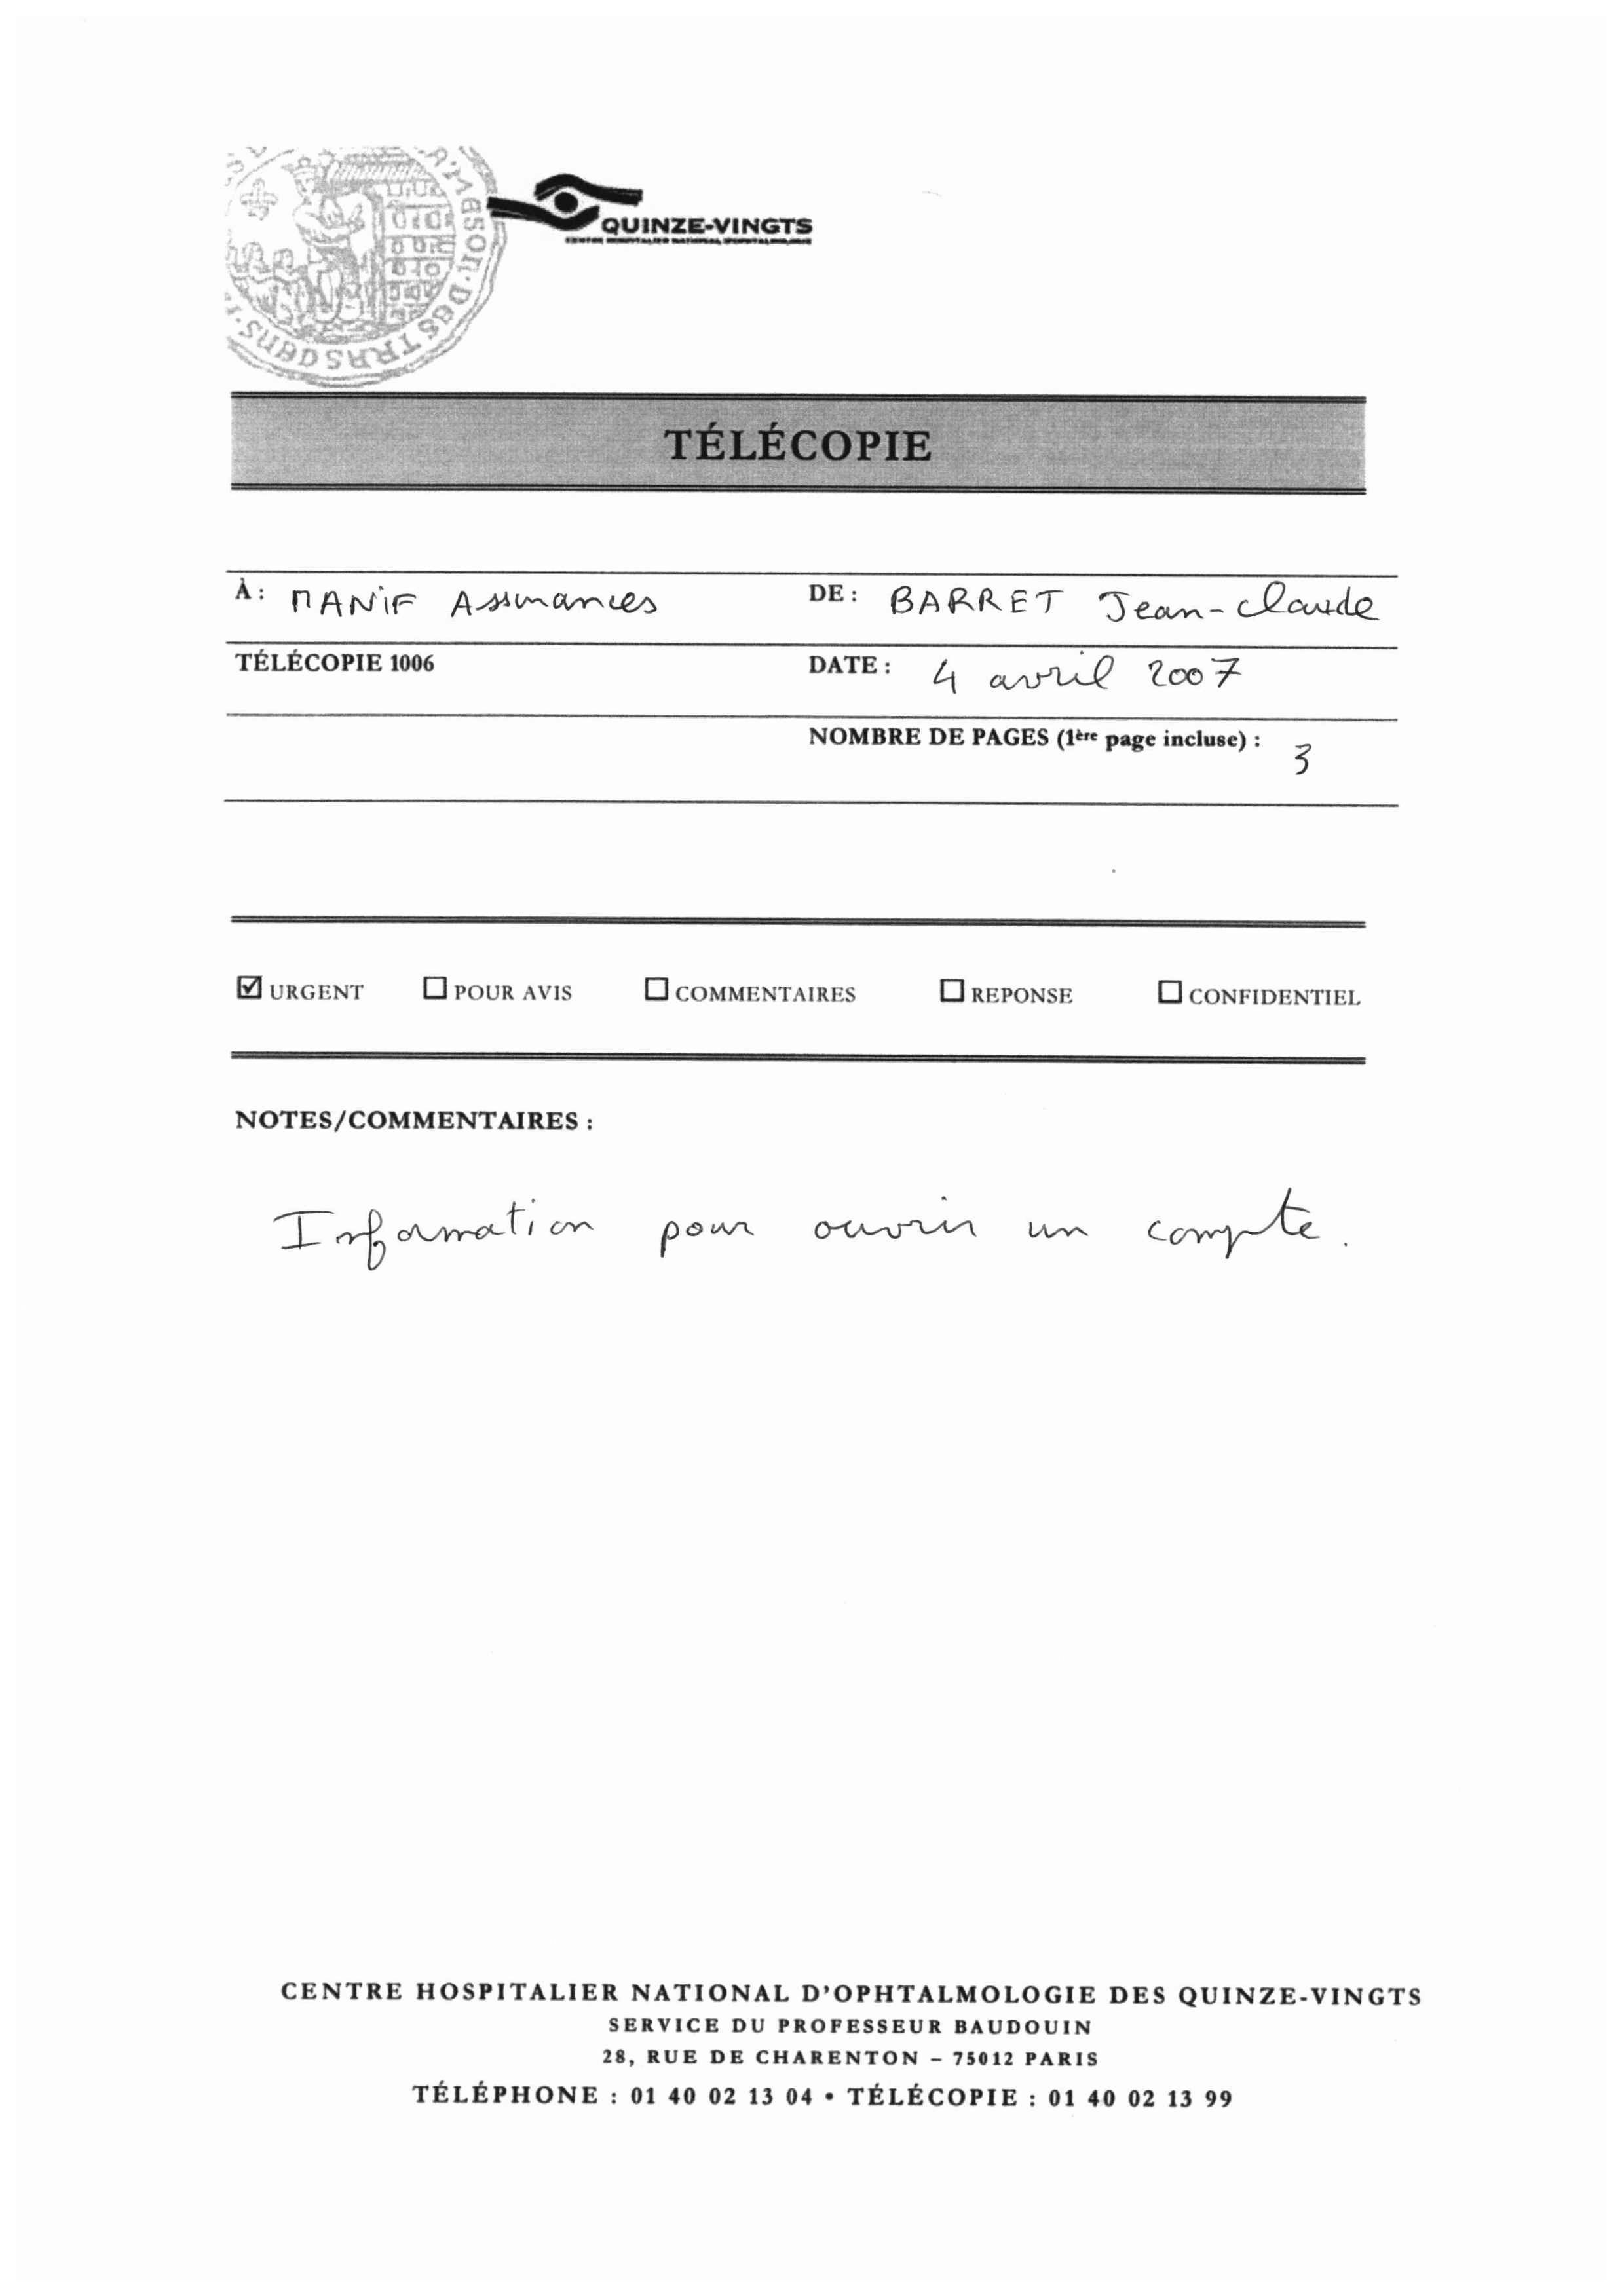 QUINZE-VINGTS
CENTRE HOSPITALIER NATIONAL D'OPHTALMOLOGIE
TÉLÉCOPIE
À : MANIF Assurances DE : BARRET Jean-claude
TÉLÉCOPIE 1006 DATE : 4 avril 2007
NOMBRE DE PAGES (1ère page incluse) : 3
☑ URGENT ☐ POUR AVIS ☐ COMMENTAIRES ☐ REPONSE ☐ CONFIDENTIEL
NOTES/COMMENTAIRES :
Information pour ouvrir un compte.
CENTRE HOSPITALIER NATIONAL D'OPHTALMOLOGIE DES QUINZE-VINGTS
SERVICE DU PROFESSEUR BAUDOUIN
28, RUE DE CHARENTON – 75012 PARIS
TÉLÉPHONE : 01 40 02 13 04 • TÉLÉCOPIE : 01 40 02 13 99